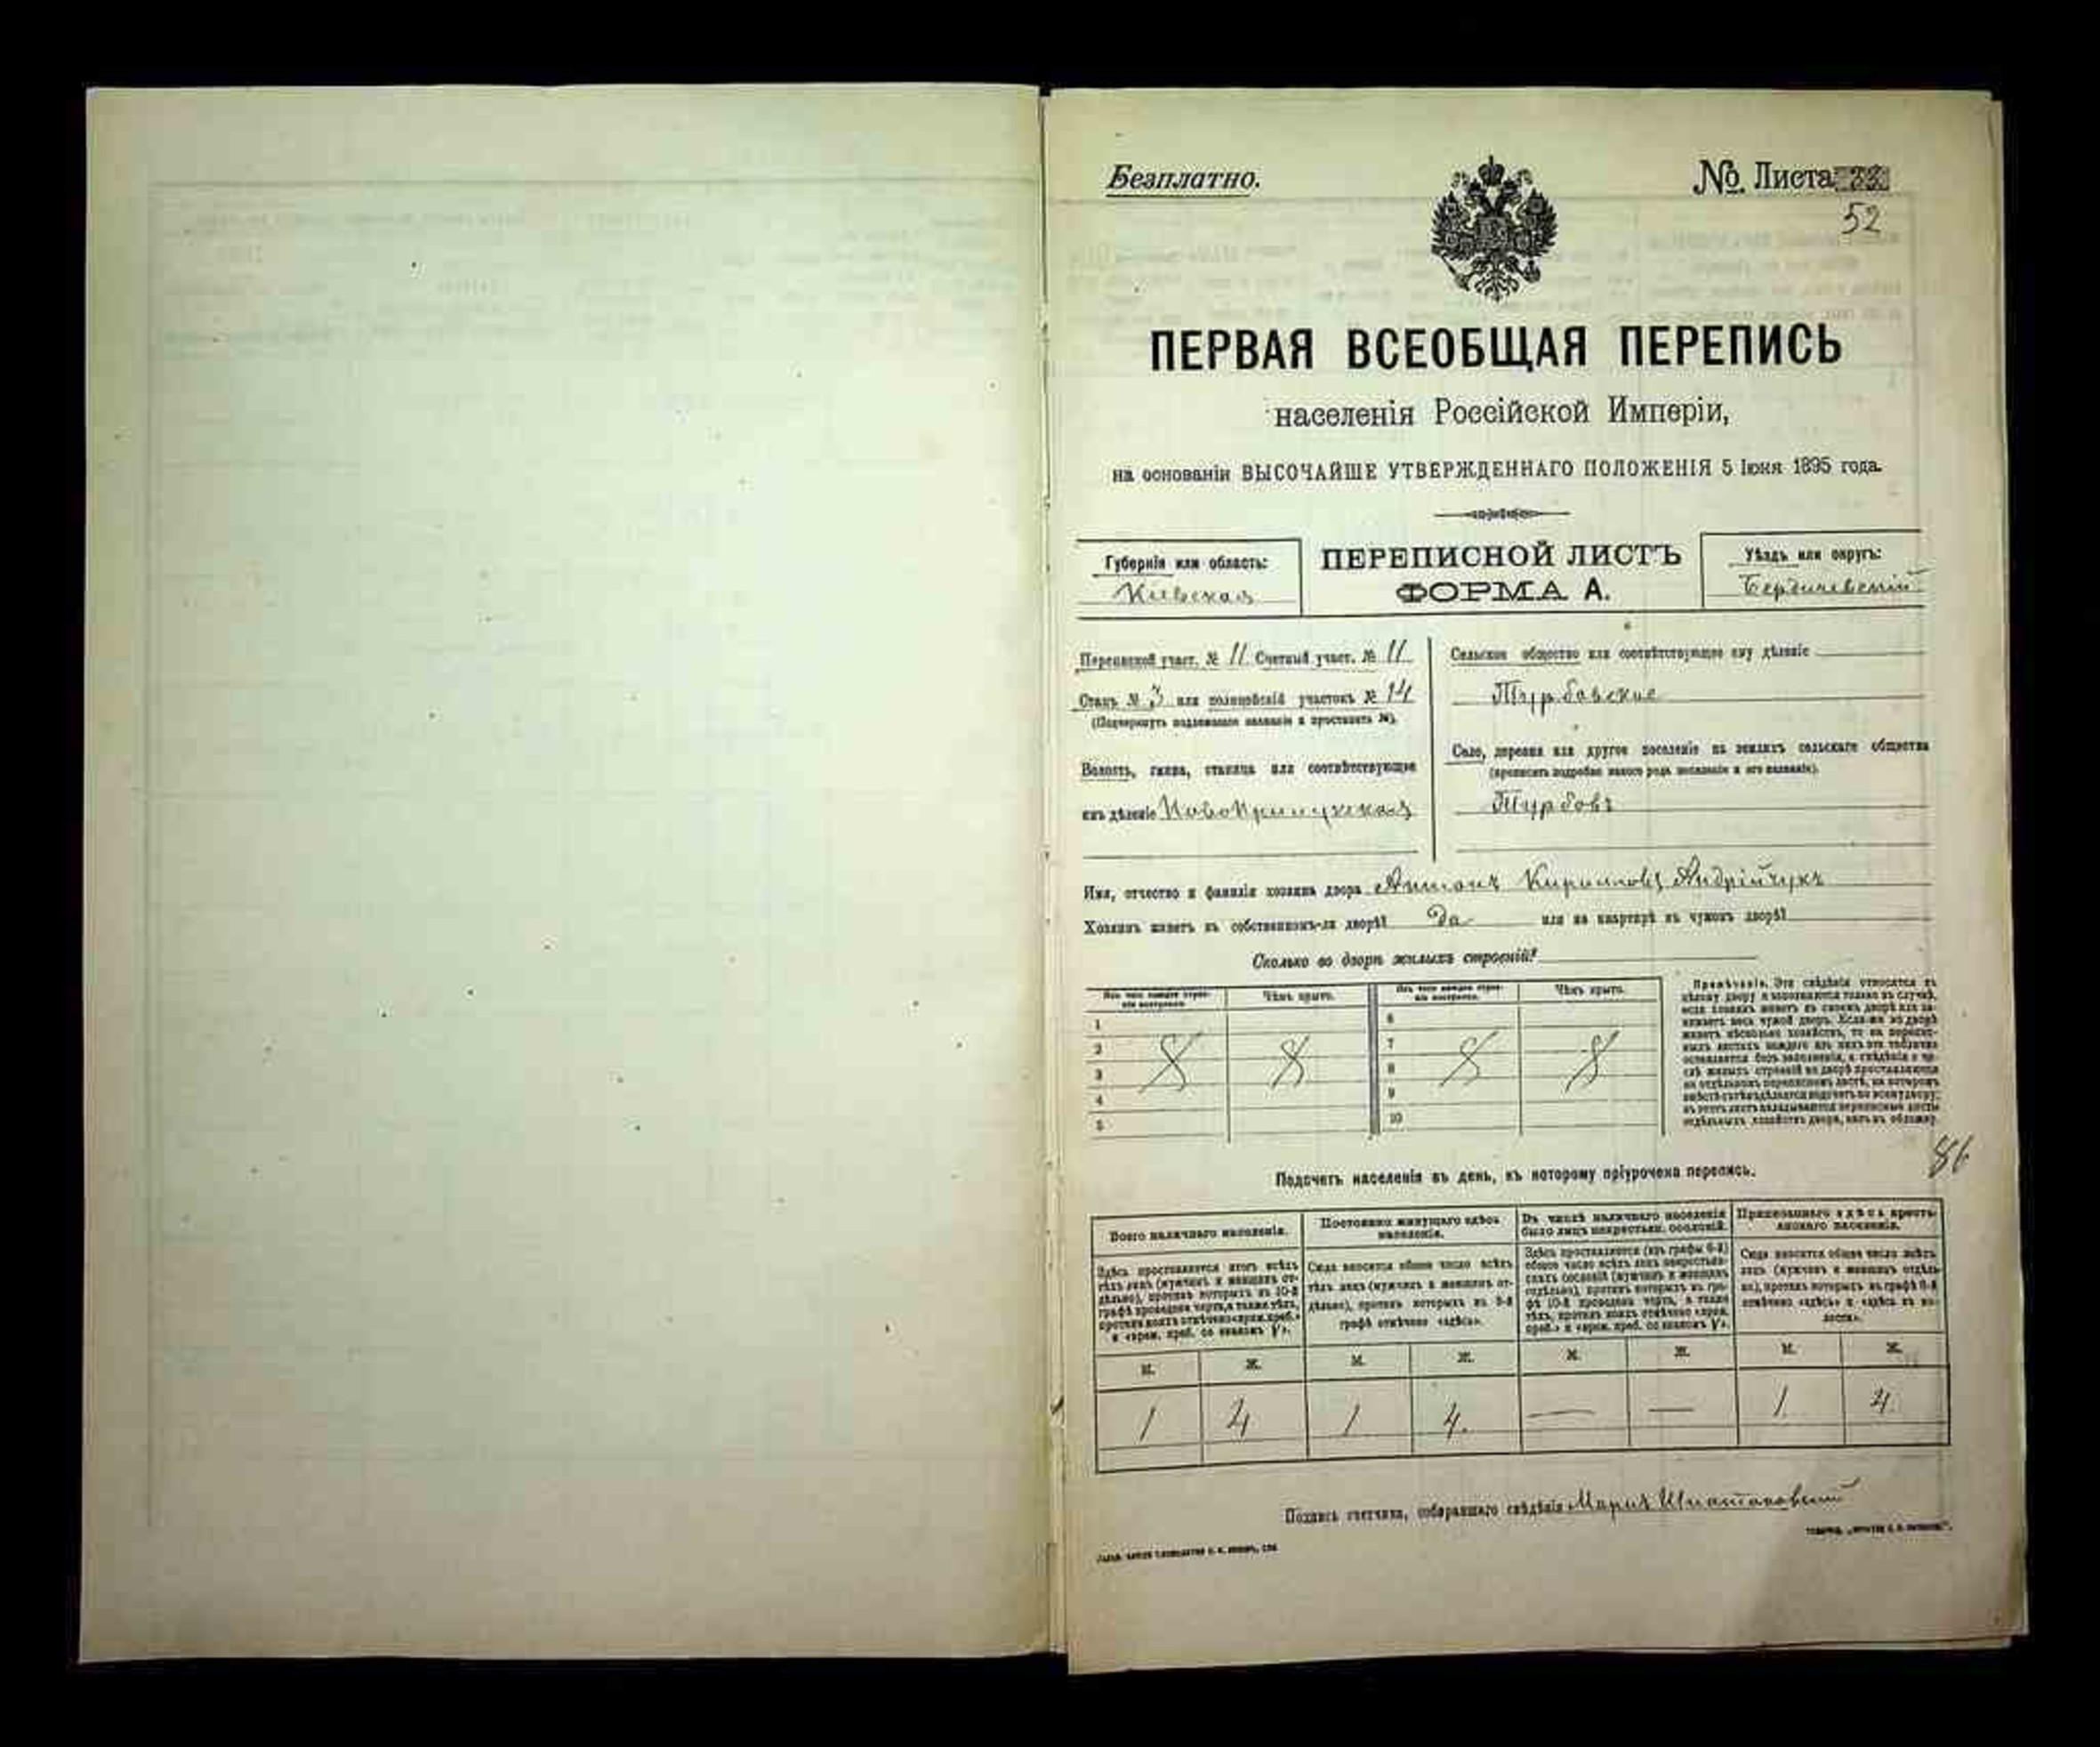 Безплатно.
№ Листа
52
ПЕРВАЯ ВСЕОБЩАЯ ПЕРЕПИСЬ
населенія Россійской Имперіи,
на основаніи ВЫСОЧАЙШЕ УТВЕРЖДЕННАГО ПОЛОЖЕНІЯ 5 Іюня 1895 года.
Губернія или область:
Кіевская
ПЕРЕПИСНОЙ ЛИСТЪ
ФОРМА А.
Уѣздъ или округъ:
Бердичевскій
Переписной участ. № 11 Счетный участ. № 11
Станъ № 3 или полицейскій участокъ № 14
(Подчеркнуть надлежащее названіе и проставить №).
Волость, гмина, станица или соотвѣтствующее
имъ дѣленіе НовоПрилукская
Сельское общество или соотвѣтствующее ему дѣленіе
Турбовское
Село, деревня или другое поселеніе на земляхъ сельскаго общества
(прописать подробно какого рода поселеніе и его названіе).
Турбовъ
Имя, отчество и фамилія хозяина двора Антонъ Андрійчукъ
Хозяинъ живетъ въ собственномъ-ли дворѣ? да или на квартирѣ въ чужомъ дворѣ?
Сколько во дворѣ жилыхъ строеній?
Изъ чего каждое строеніе построено.
Чѣмъ крыто.
Изъ чего каждое строеніе построено.
Чѣмъ крыто.
1
2
3
4
5
6
7
8
9
10
Примѣчаніе. Эти свѣдѣнія относятся къ
цѣлому двору и заполняются только въ случаѣ,
если хозяинъ живетъ въ своемъ дворѣ или за-
нимаетъ весь чужой дворъ. Если-же во дворѣ
живетъ нѣсколько хозяйствъ, то на перепис-
ныхъ листахъ каждаго изъ нихъ эта табличка
оставляется безъ заполненія, а свѣдѣнія о чи-
слѣ жилыхъ строеній во дворѣ проставляются
на отдѣльномъ переписномъ листѣ, на которомъ
вмѣстѣ съ тѣмъ дѣлается подсчетъ по всему двору;
въ этотъ листъ вкладываются переписные листы
отдѣльныхъ хозяйствъ двора, какъ въ обложку.
86
Подсчетъ населенія въ день, къ которому пріурочена перепись.
Всего наличнаго населенія.
Здѣсь проставляется итогъ всѣхъ
тѣхъ лицъ (мужчинъ и женщинъ от-
дѣльно), противъ которыхъ въ 10-й
графѣ проведена черта, а также тѣхъ,
противъ коихъ отмѣчено «врем. преб.»
и «врем. преб. со знакомъ V».
Постоянно живущаго здѣсь
населенія.
Сюда вносится общее число всѣхъ
тѣхъ лицъ (мужчинъ и женщинъ от-
дѣльно), противъ которыхъ въ 9-й
графѣ отмѣчено «здѣсь».
Въ числѣ наличнаго населенія
было лицъ некрестьян. сословій.
Здѣсь проставляется (изъ графы 6-й)
общее число всѣхъ лицъ некрестьян-
скихъ сословій (мужчинъ и женщинъ
отдѣльно), противъ которыхъ въ гра-
фѣ 10-й проведена черта, а также
тѣхъ, противъ коихъ отмѣчено «врем.
преб.» и «врем. преб. со знакомъ V».
Приписаннаго здѣсь кресть-
янскаго населенія.
Сюда вносится общее число всѣхъ
лицъ (мужчинъ и женщинъ отдѣль-
но), противъ которыхъ въ графѣ 8-й
отмѣчено «здѣсь» и «здѣсь въ во-
лости».
М. Ж. М. Ж. М. Ж. М. Ж.
1 4 1 4. — — 1 4.
Подпись счетчика, собиравшаго свѣдѣнія